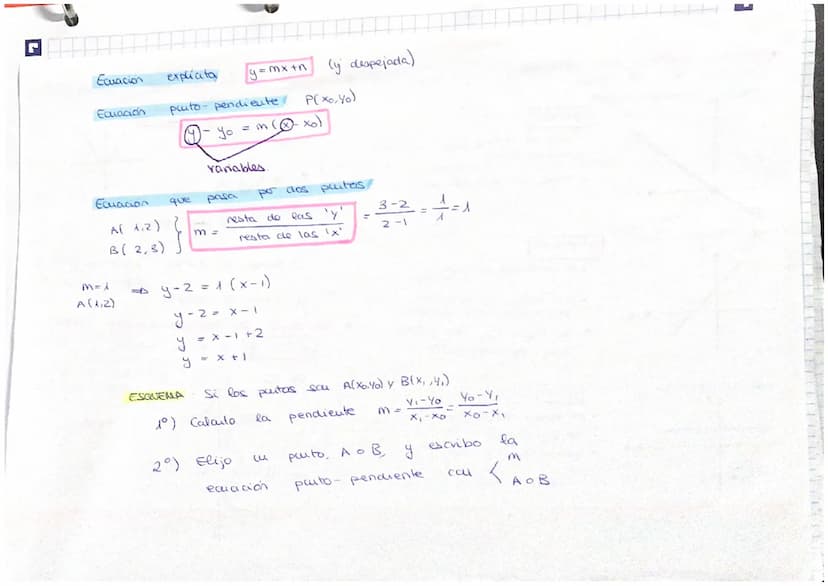 Ecuación explícita y = mx+n (y despejada)
Ecuación punto-pendiente P(x₀,y₀)
y - y₀ = m (x - x₀)
variables.
Ecuación que pasa por dos puntos
A( 1,2)
B( 2,3) } m = resta de las 'y' / resta de las 'x' = 3-2 / 2-1 = 1/1 = 1
m=1 ⇒ y-2 = 1 (x-1)
A(1,2)
y-2 = x-1
y = x-1+2
y = x+1
ESQUEMA Si los puntos son A(x₀,y₀) y B(x₁,y₁)
1º) Calculo la pendiente m = y₁-y₀ / x₁-x₀ = y₀-y₁ / x₀-x₁
2º) Elijo un punto, A o B, y escribo la
ecuación punto-pendiente con < m
A o B